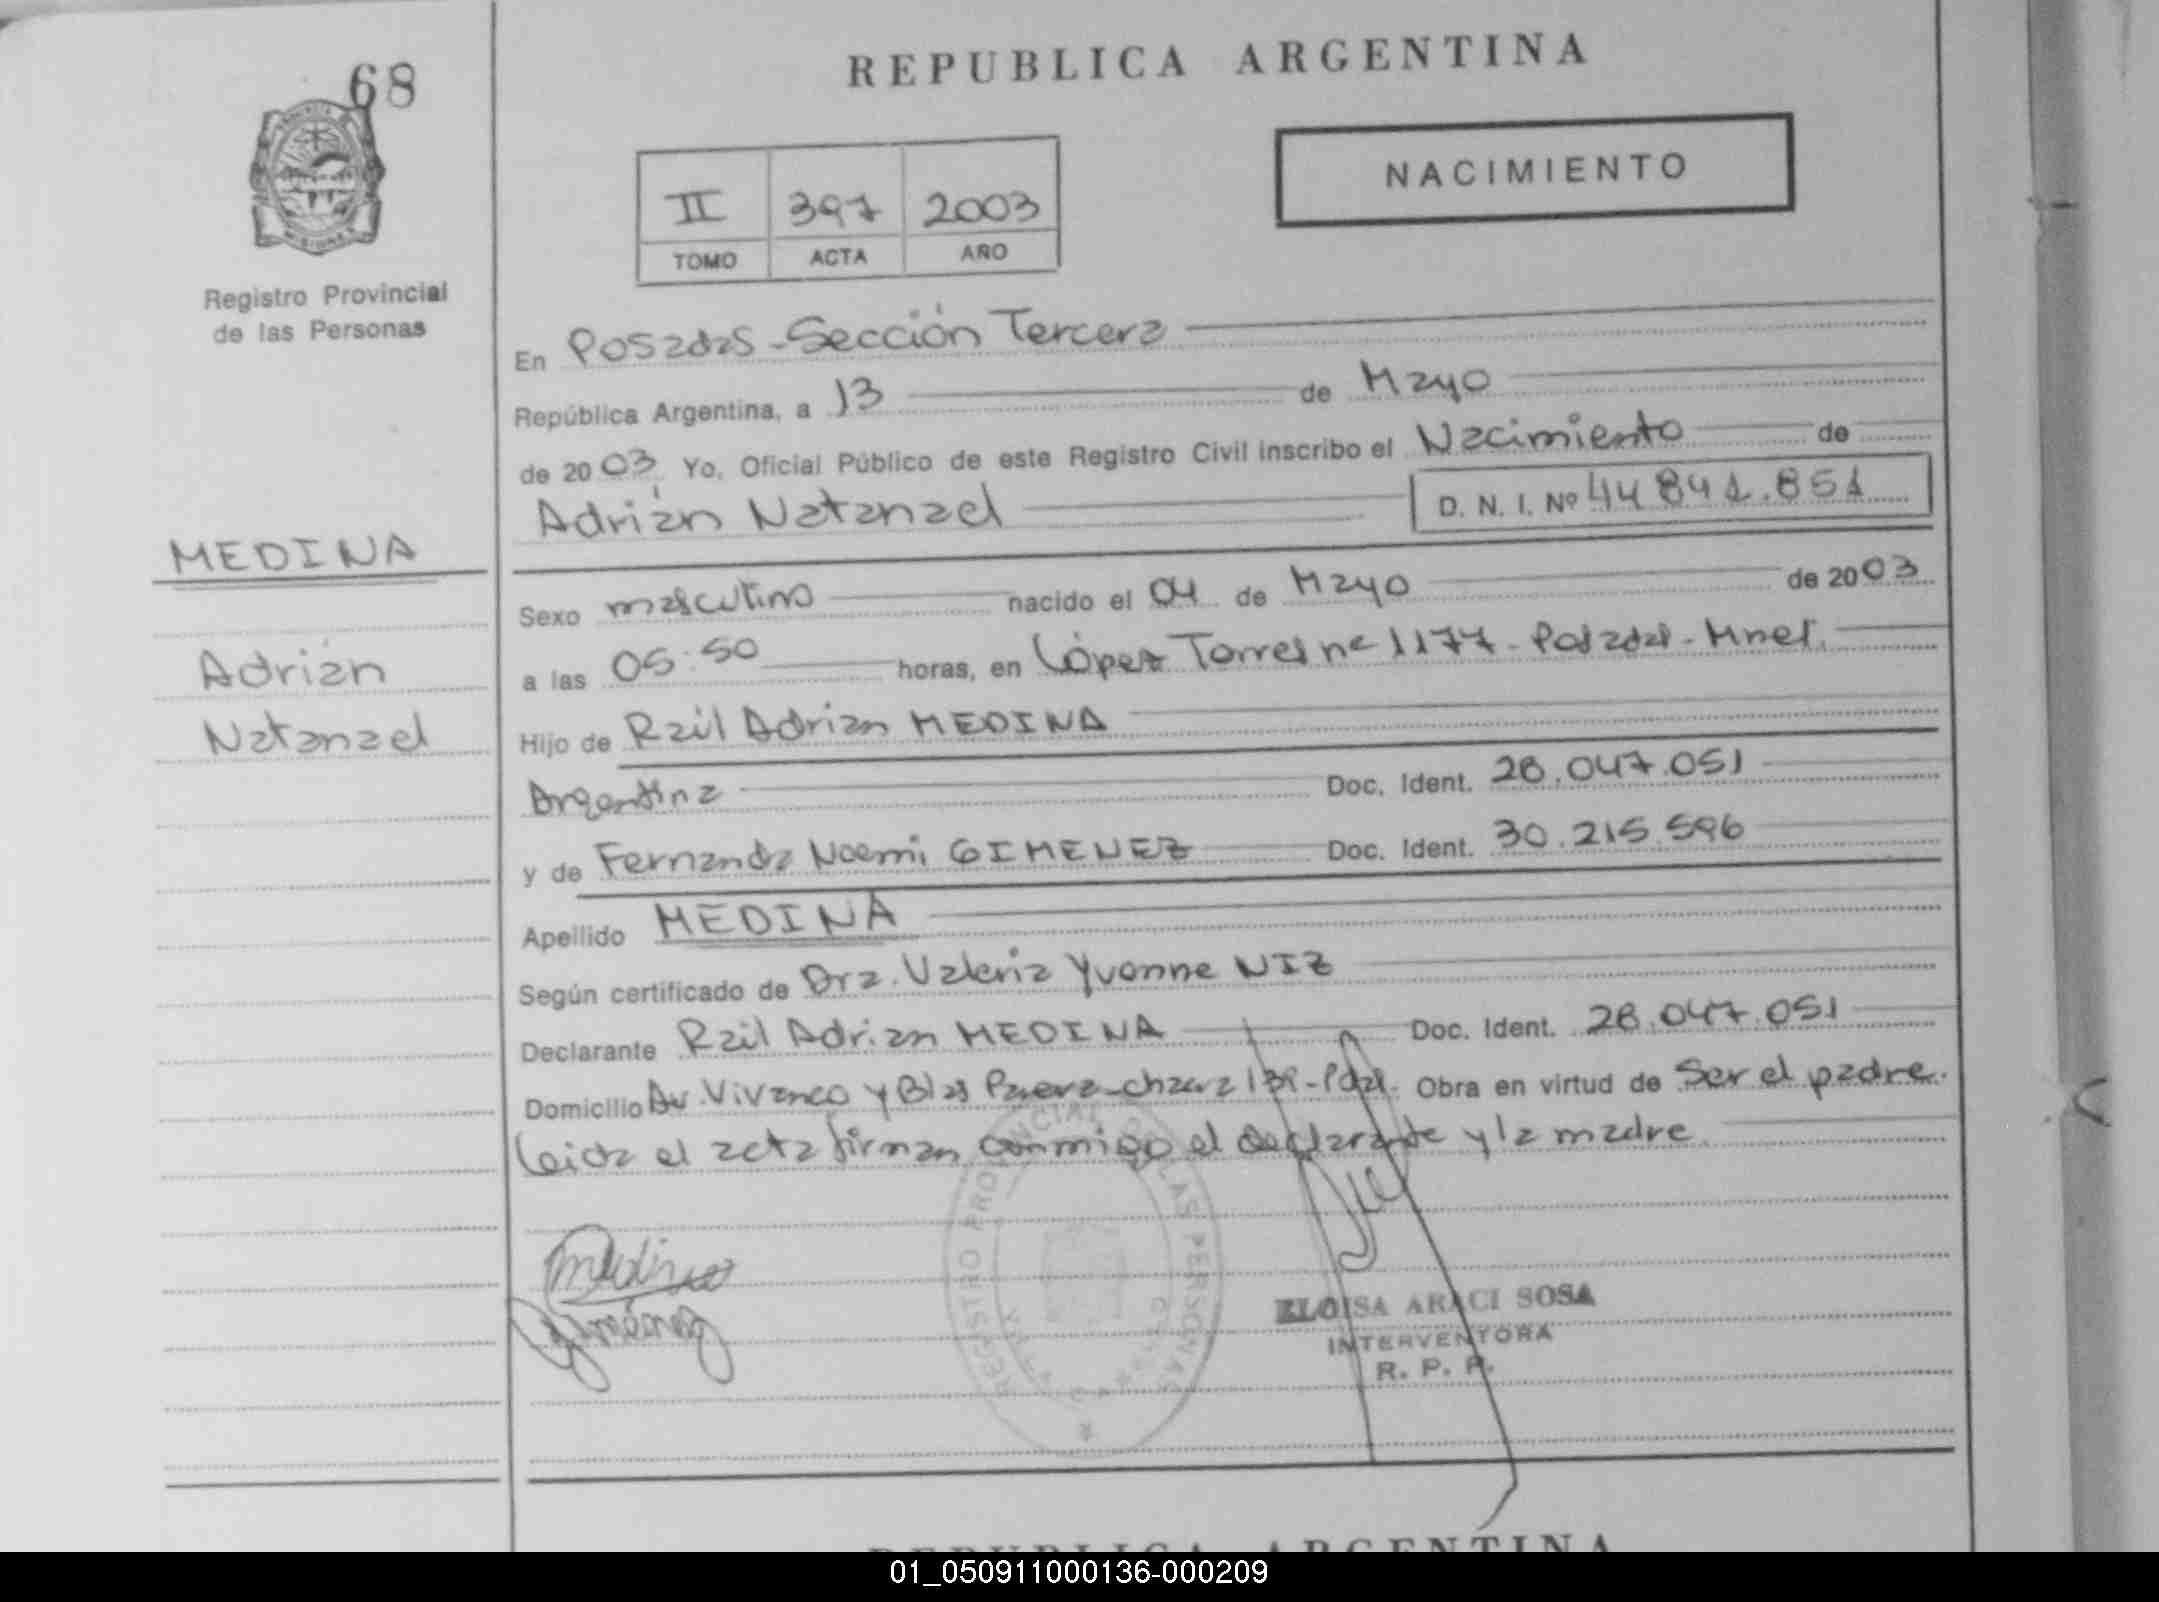 68
REPUBLICA ARGENTINA
NACIMIENTO
II 397 2003
TOMO ACTA AÑO
Registro Provincial
de las Personas
En Posadas - Sección Tercera
República Argentina, a 13 de Mayo
de 2003 Yo, Oficial Público de este Registro Civil inscribo el Nacimiento de
Adrián Natanael D. N. I. Nº 44 841.851
MEDINA
Adrián
Natanael
Sexo masculino nacido el 04 de Mayo de 2003
a las 05:50 horas, en López Torres nº 1177 - Posadas - Mnes.
Hijo de Raúl Adrian MEDINA
Argentina Doc. Ident. 28.047.051
y de Fernanda Noemi GIMENEZ Doc. Ident. 30.215.596
Apellido MEDINA
Según certificado de Dra. Valeria Yvonne NIZ
Declarante Raúl Adrian MEDINA Doc. Ident. 28.047.051
Domicilio Av. Vivanco y Blas Parera - chacra Obra en virtud de Ser el padre.
Leida el acta firman conmigo el declarante y la madre
Medina
REGISTRO PROVINCIAL DE LAS PERSONAS
ELOISA ARACI SOSA
INTERVENTORA
R. P. P.
REPUBLICA ARGENTINA
01_050911000136-000209